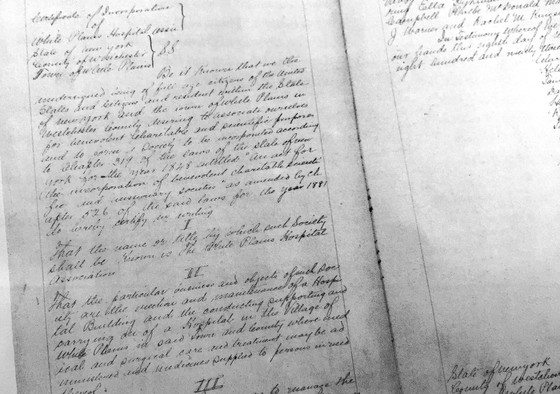 Certificate of Incorporation
of
White Plains Hospital Assn
State of New York
County of Westchester
Town of White Plains
SS
Be it known that we the
undersigned being of full age citizens of the United
States and Citizens and resident within the State
of New York and the town of White Plains in
Westchester County desiring to associate ourselves
for benevolent charitable and scientific purposes
and to form a Society to be incorporated according
to Chapter 319 of the laws of the state of new
York for the year 1848 entitled "An act for
the incorporation of benevolent charitable scienti-
fic and missionary societies" as amended by ch
apter 526 of the said laws for the year 1881
do hereby certify in writing
I
That the name or title by which such Society
shall be known is The White Plains Hospital
Association
II
That the particular business and objects of such Soc-
iety are the erection and maintenance of a Hospi-
tal Building and the conducting supporting and
carrying on of a Hospital in the Village of
White Plains in said Town and County where med
ical and surgical care and treatment may be ad
ministered and medicines supplied to persons in need
thereof
III
to manage the
Campbell McDonald
J Warner and Rachel M
In testimony whereof
our hands this eighth day of
eight hundred and ninety
State of new york
County of Westchester
White Plains